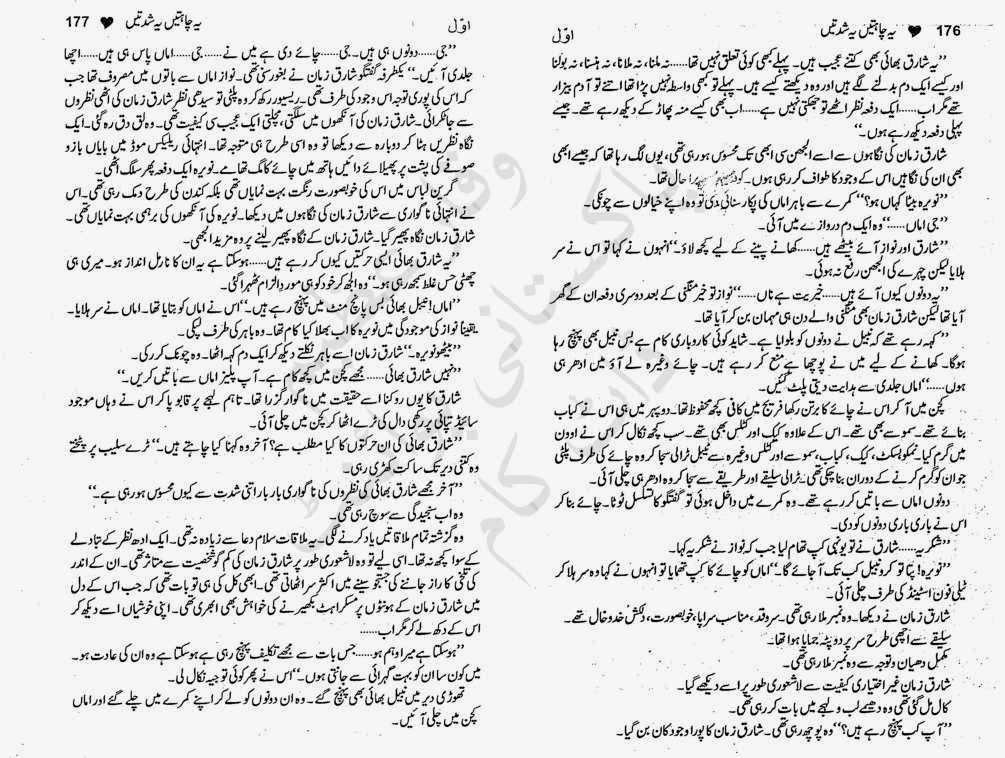 176 ♥ یہ چاہتیں یہ شدتیں اوّل
”یہ شارق بھائی بھی کتنے عجیب ہیں۔ پہلے کبھی کوئی تعلق نہیں تھا......نہ ملنا، نہ ملانا، نہ ہنسنا، نہ بولنا
اور کیسے ایک دم بدلنے لگے ہیں اور وہ دیکھتے کیسے ہیں۔ پہلے تو کبھی واسطہ نہیں پڑا تھا اتنے تو آدم بیزار
تھے مگر اب......ایک دفعہ نظر اٹھے تو جھکتی نہیں ہے......اب بھی کیسے منہ پھاڑ کے دیکھ رہے تھے۔ جیسے
پہلی دفعہ دیکھ رہے ہوں۔“
شارق زمان کی نگاہوں سے اسے الجھن سی ابھی تک محسوس ہو رہی تھی، یوں لگ رہا تھا کہ جیسے ابھی
بھی ان کی نگاہیں اس کے وجود کا طواف کر رہی ہوں۔ حال تھا۔
”نویرہ بیٹا کہاں ہو؟“ کمرے سے باہر اماں کی پکار سنائی دی تو وہ اپنے خیالوں سے چونکی۔
”جی اماں......“ وہ ایک دم دروازے میں آئی۔
”شارق اور نواز آئے بیٹھے ہیں......کھانے پینے کے لیے کچھ لاؤ۔“ انہوں نے کہا تو اس نے سر
ہلایا لیکن چہرے کی الجھن رفع نہ ہوئی۔
”یہ دونوں کیوں آئے ہیں......خیریت ہے ناں......“ نواز تو خیر منگنی کے بعد دوسری دفعہ ان کے گھر
آیا تھا لیکن شارق زمان بھی منگنی والے دن ہی مہمان بن کر آیا تھا۔
”کہہ رہے تھے کہ نبیل نے دونوں کو بلوایا ہے۔ شاید کوئی کاروباری کام ہے بس نبیل بھی پہنچ رہا
ہوگا۔ کھانے کے لیے میں نے پوچھا ہے منع کر رہے ہیں۔ چائے وغیرہ لے آؤ میں ادھر ہی
ہوں......“ اماں جلدی سے ہدایت دیتی پلٹ گئیں۔
کچن میں آ کر اس نے چائے کا برتن رکھا فریج میں کافی کچھ محفوظ تھا۔ دوپہر میں ہی اس نے کباب
بنائے تھے۔ سموسے بھی تھے۔ اس کے علاوہ کیک اور کٹلس بھی تھے۔ سب کچھ نکال کر اس نے اوون
میں گرم کیا۔ نمکو بسکٹ، کیک، کباب، سموسے اور کٹلس وغیرہ سے ٹیبل ٹرالی سجا کر وہ چائے کی طرف پلٹی
جو ان کو گرم کرنے کے دوران بنا چکی تھی۔ ٹرالی سلیقے اور طریقے سے سجا کر وہ ادھر ہی چلی آئی۔
دونوں اماں سے باتیں کر رہے تھے۔ وہ کمرے میں داخل ہوئی تو گفتگو کا تسلسل ٹوٹا۔ چائے بنا کر
اس نے باری باری دونوں کو دی۔
”شکریہ......شارق نے تو یونہی کپ تھام لیا جب کہ نواز نے شکریہ کہا۔
”نویرہ! پتا تو کرو نبیل کب تک آ جائے گا۔“ اماں کو چائے کا کپ تھمایا تو انہوں نے کہا وہ سر ہلا کر
ٹیلی فون اسٹینڈ کی طرف چلی آئی۔
شارق زمان نے دیکھا۔ وہ نمبر ملا رہی تھی۔ سرو قد، مناسب سراپا، خوبصورت، دلکش خدوخال تھے۔
سلیقے سے اچھی طرح سر پر دوپٹہ جمایا ہوا تھا۔
مکمل دھیان و توجہ سے وہ نمبر ملا رہی تھی۔
شارق زمان غیر اختیاری کیفیت سے لاشعوری طور پر اسے دیکھے گیا۔
کال مل گئی تھی وہ دھیمے لب و لہجے میں بات کر رہی تھی۔
”آپ کب پہنچ رہے ہیں؟“ وہ پوچھ رہی تھی۔ شارق زمان کا پورا وجود کان بن گیا۔
یہ چاہتیں یہ شدتیں ♥ 177 اوّل
”جی......دونوں ہی ہیں۔ جی......چائے دی ہے میں نے......جی......اماں پاس ہی ہیں......اچھا
جلدی آئیں۔“ یکطرفہ گفتگو شارق زمان نے بغور سنی تھی۔ نواز اماں سے باتوں میں مصروف تھا جب
کہ اس کی پوری توجہ اس وجود کی طرف تھی۔ ریسیور رکھ کر وہ پلٹی تو سیدھی نظر شارق زمان کی اٹھی نظروں
سے جا ٹکرائی۔ شارق زمان کی آنکھوں میں سلگتی، مچلتی ایک عجیب سی کیفیت تھی۔ وہ لق دق رہ گئی۔ ایک
نگاہ نظریں ہٹا کر دوبارہ سے دیکھا تو وہ اسی طرح ہی متوجہ تھا۔ انتہائی ریلیکس موڈ میں بایاں بازو
صوفے کی پشت پر پھیلائے دائیں ہاتھ میں چائے کا مگ تھامے۔ نویرہ ایک دفعہ پھر سلگ اٹھی۔
گرین لباس میں اس کی خوبصورت رنگت بہت نمایاں تھی بلکہ کندن کی طرح دمک رہی تھی۔ اس
نے انتہائی ناگواری سے شارق زمان کی نگاہوں میں دیکھا۔ نویرہ کی آنکھوں کی برہمی بہت نمایاں تھی۔
شارق زمان نگاہ پھیر گیا۔ شارق زمان کے نگاہ پھیر لینے پر وہ مزید الجھی۔
”یہ شارق بھائی ایسی حرکتیں کیوں کر رہے ہیں......ہوسکتا ہے یہ ان کا نارمل انداز ہو۔ میری ہی
چھٹی حس غلط سمجھ رہی ہو۔“ وہ الجھ کر خود کو ہی مورد الزام ٹھہرا گئی۔
”اماں! نبیل بھائی بس پانچ منٹ میں پہنچ رہے ہیں۔“ اس نے اماں کو بتایا تھا۔ اماں نے سر ہلایا۔
یقیناً نواز کی موجودگی میں نویرہ کا اب بھلا کیا کام تھا۔ وہ باہر کی طرف لپکی۔
”بیٹھو نویرہ۔“ شارق زمان اسے باہر نکلتے دیکھ کر ایک دم کہہ اٹھا۔ وہ چونک کر رکی۔
”نہیں شارق بھائی......مجھے کچن میں کچھ کام ہے۔ آپ پلیز اماں سے باتیں کریں۔“
شارق کا یوں روکنا اسے حقیقت میں ناگوار گزرا تھا۔ تاہم لہجے پر قابو پا کر اس نے وہاں موجود
سائیڈ تپائی پر رکھی دال کی ٹرے اٹھا کر کچن میں چلی آئی۔
”شارق بھائی کی ان حرکتوں کا کیا مطلب ہے؟ آخر وہ کہنا کیا چاہتے ہیں۔“ ٹرے سلیب پر پٹختے
وہ کتنی دیر تک ساکت کھڑی رہی۔
”آخر مجھے شارق بھائی کی نظروں کی ناگواری بار بار اتنی شدت سے کیوں محسوس ہو رہی ہے۔“
وہ اب سنجیدگی سے سوچ رہی تھی۔
وہ گزشتہ تمام ملاقاتیں یاد کرنے لگی۔ یہ ملاقات سلام دعا سے زیادہ نہ تھی۔ ایک ادھ نظر کے تبادلے
کے سوا کچھ نہ تھا۔ اسی لیے تو وہ لاشعوری طور پر شارق زمان کی کم گو شخصیت سے متاثر تھی۔ ان کے اندر
کی تلخی کا راز جاننے کی جستجو سینے میں اکثر سر اٹھاتی تھی۔ ابھی کل کی ہی تو بات تھی کہ جب اس کے دل
میں شارق زمان کے ہونٹوں پر مسکراہٹ بکھیرنے کی خواہش بھی ابھری تھی۔ اپنی خوشیاں اسے دیکھ کر
اس کے دکھ لے کر مگر اب......
”ہوسکتا ہے میرا وہم ہو......جس بات سے مجھے تکلیف پہنچ رہی ہے ہوسکتا ہے وہ ان کی عادت ہو۔
میں کون سا ان کو بہت گہرائی سے جانتی ہوں۔“ اس نے پھر کوئی توجیہ نکال لی۔
تھوڑی دیر میں نبیل بھائی بھی پہنچ گئے۔ وہ ان دونوں کو لے کر اپنے کمرے میں چلے گئے اور اماں
کچن میں چلی آئیں۔